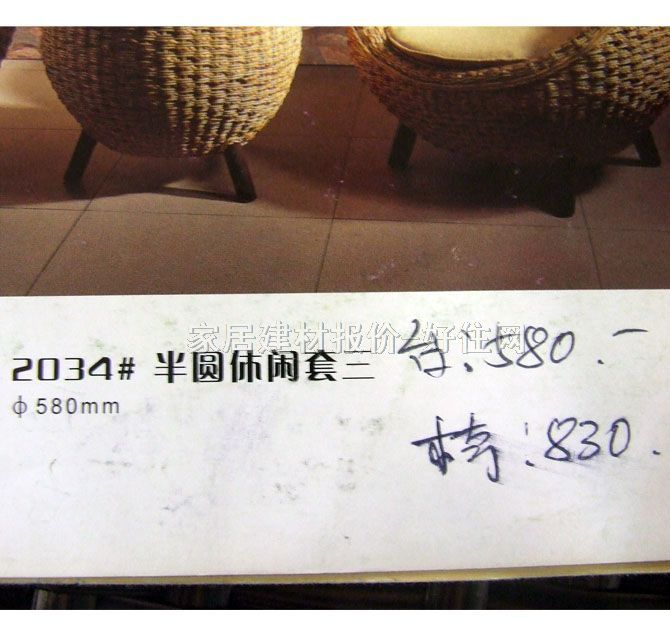 家居建材报价-好住网
2034# 半圆休闲套三 台:580.-
φ580mm
椅:830.